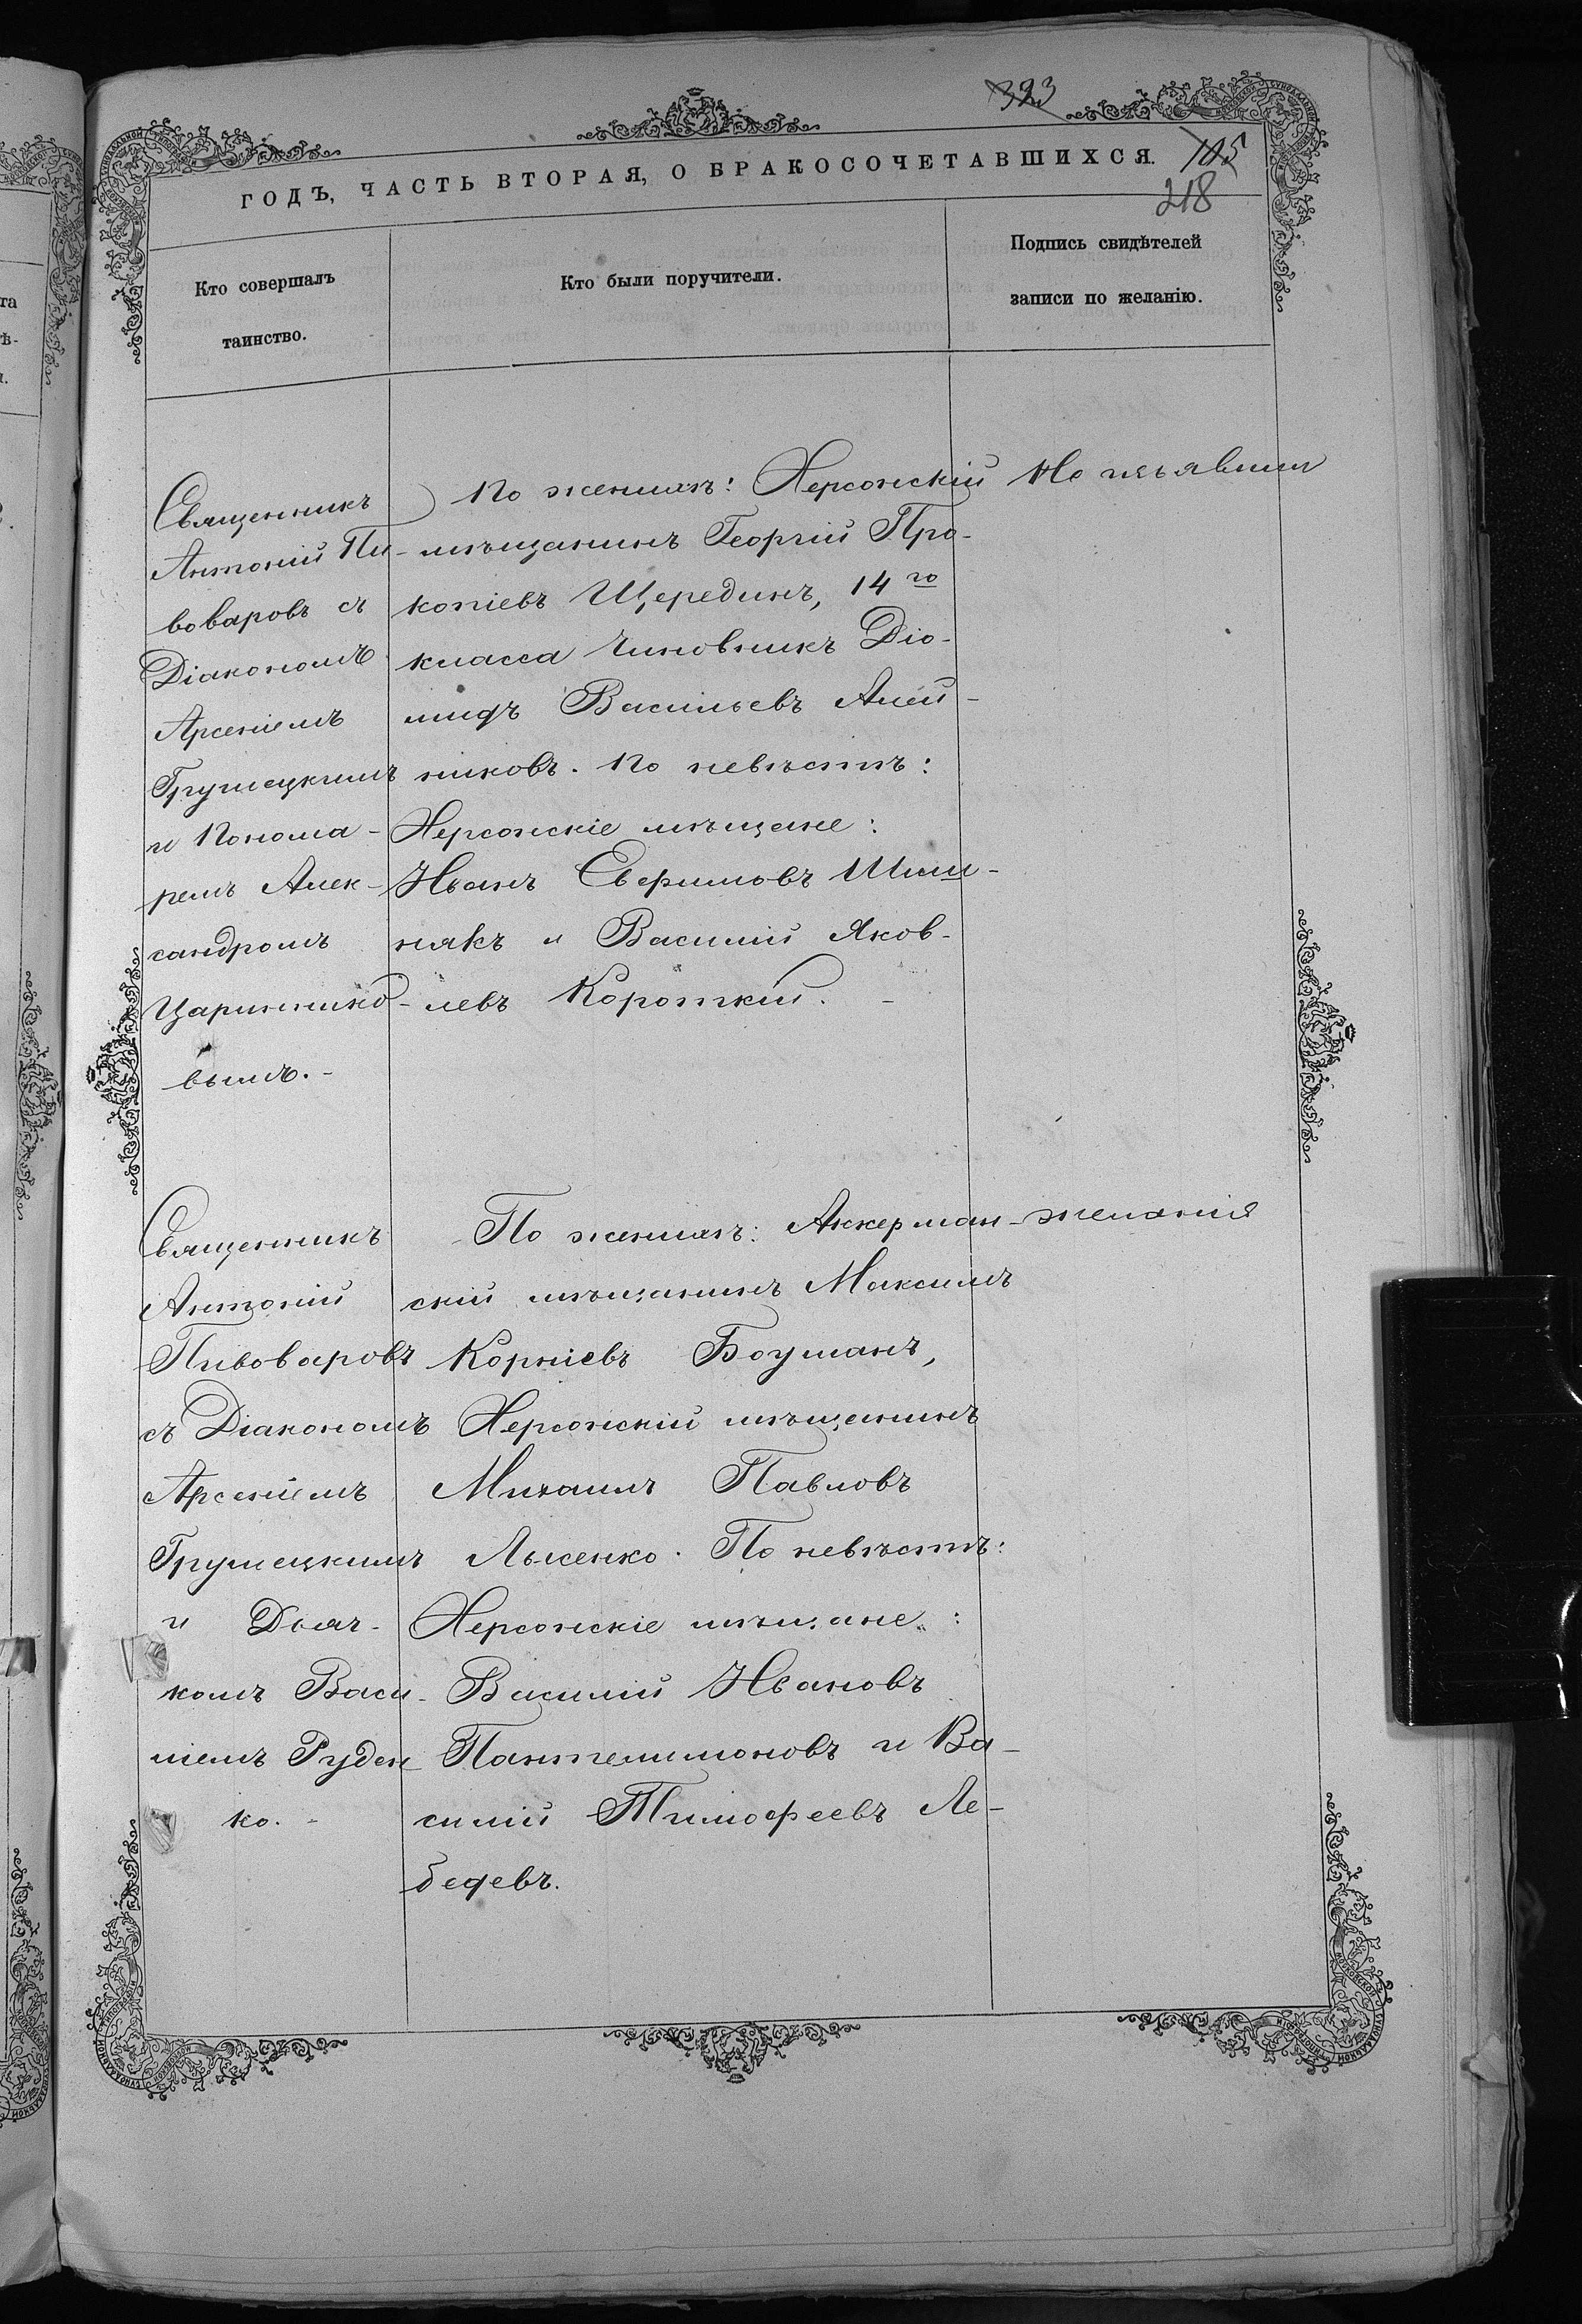 323
ГОДЪ, ЧАСТЬ ВТОРАЯ, О БРАКОСОЧЕТАВШИХСЯ.
105
218
Кто совершалъ
таинство.
Кто были поручители.
Подпись свидѣтелей
записи по желанію.
Священникъ
Антоній Пи-
воваровъ съ
Діакономъ
Арсеніемъ
Грушецкимъ
и Понома-
ремъ Алек-
сандромъ
Царинико-
вымъ.-
По женихѣ: Херсонскій
мѣщанинъ Георгій Про-
копіевъ Щерединъ, 14го
класса Чиновникъ Діо-
мидъ Васильевъ Алей-
никовъ. По невѣстѣ:
Херсонскіе мѣщане:
Иванъ Евфимовъ Шиш-
накъ и Василій Яков-
левъ Короткій.-
Не изъявили
Священникъ
Антоній
Пивоваровъ
съ Діакономъ
Арсеніемъ
Грушецкимъ
и Дьяч-
комъ Васи-
ліемъ Руден-
ко.-
По женихѣ: Аккерман-
скій мѣщанинъ Максимъ
Корніевъ Боуманъ,
Херсонскій мѣщанинъ
Михаилъ Павловъ
Лысенко. По невѣстѣ:
Херсонскіе мѣщане:
Василій Ивановъ
Пантелимоновъ и Ва-
силій Тимофеевъ Ле-
бедевъ.
желанія